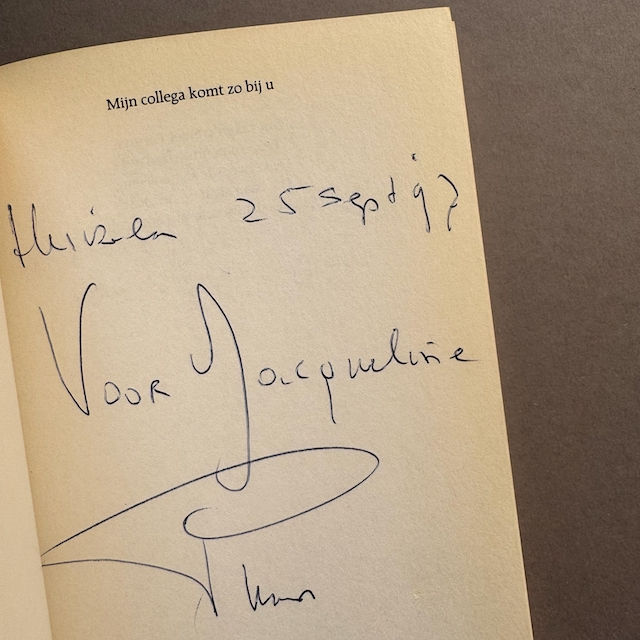 Mijn collega komt zo bij u
Huizen 25 Sept 97
Voor Jacqueline